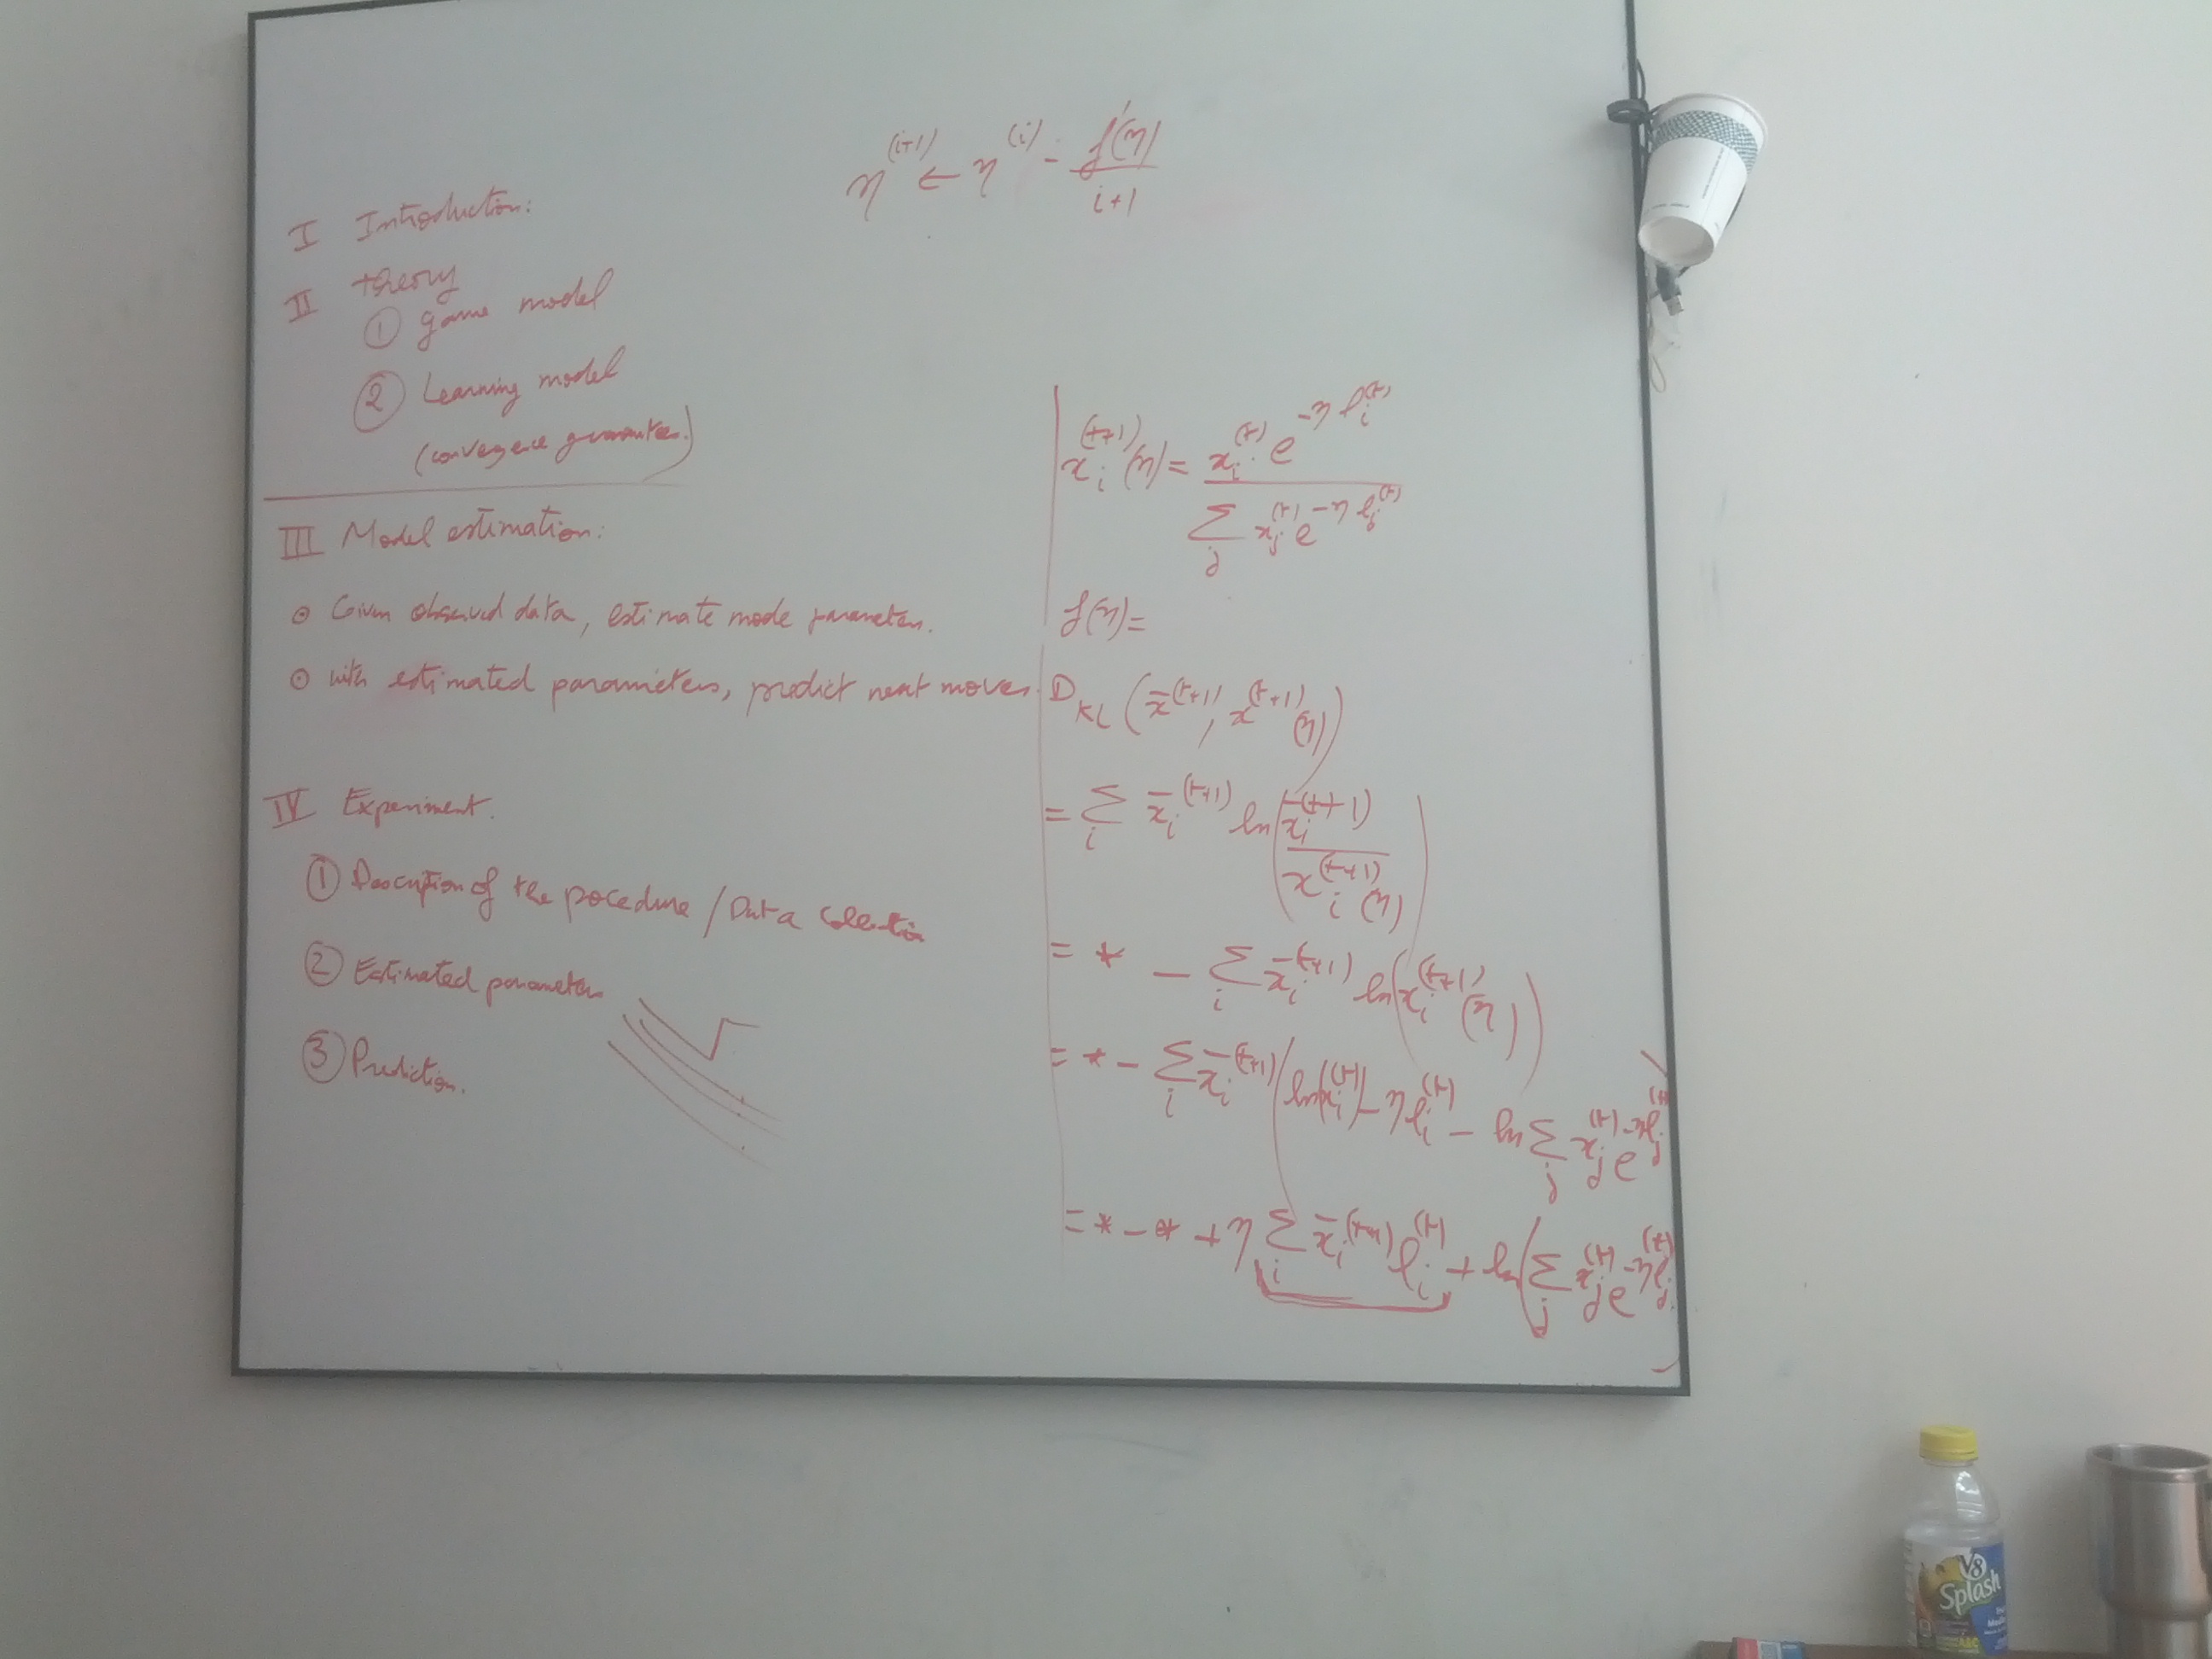 η^(i+1) ← η^(i) - f'(η) / i+1
I Introduction:
II theory
① game model
② Learning model
(convergence guarantees.)
III Model estimation:
⊙ Given observed data, estimate mode parameters.
⊙ with estimated parameters, predict next moves.
IV Experiment.
① Description of the pocedure / Data
② Estimated parameters
③ Prediction.
x_i^(t+1)(η) = x_i^(t) e^(-η l_i^(t)) / Σ_j x_j^(t) e^(-η l_j^(t))
f(η) =
D_KL (x̄^(t+1), x^(t+1)(η))
= Σ_i x̄_i^(t+1) ln( x̄_i^(t+1) / x_i^(t+1)(η) )
= * - Σ_i x̄_i^(t+1) ln( x_i^(t+1)(η) )
= * - Σ_i x̄_i^(t+1) ( ln(x_i^(t)) - η l_i^(t) - ln Σ_j x_j^(t) e^(-η l_j^(t)) )
= * - * + η Σ_i x̄_i^(t+1) l_i^(t) + ln( Σ_j x_j^(t) e^(-η l_j^(t)) )
V8
Splash